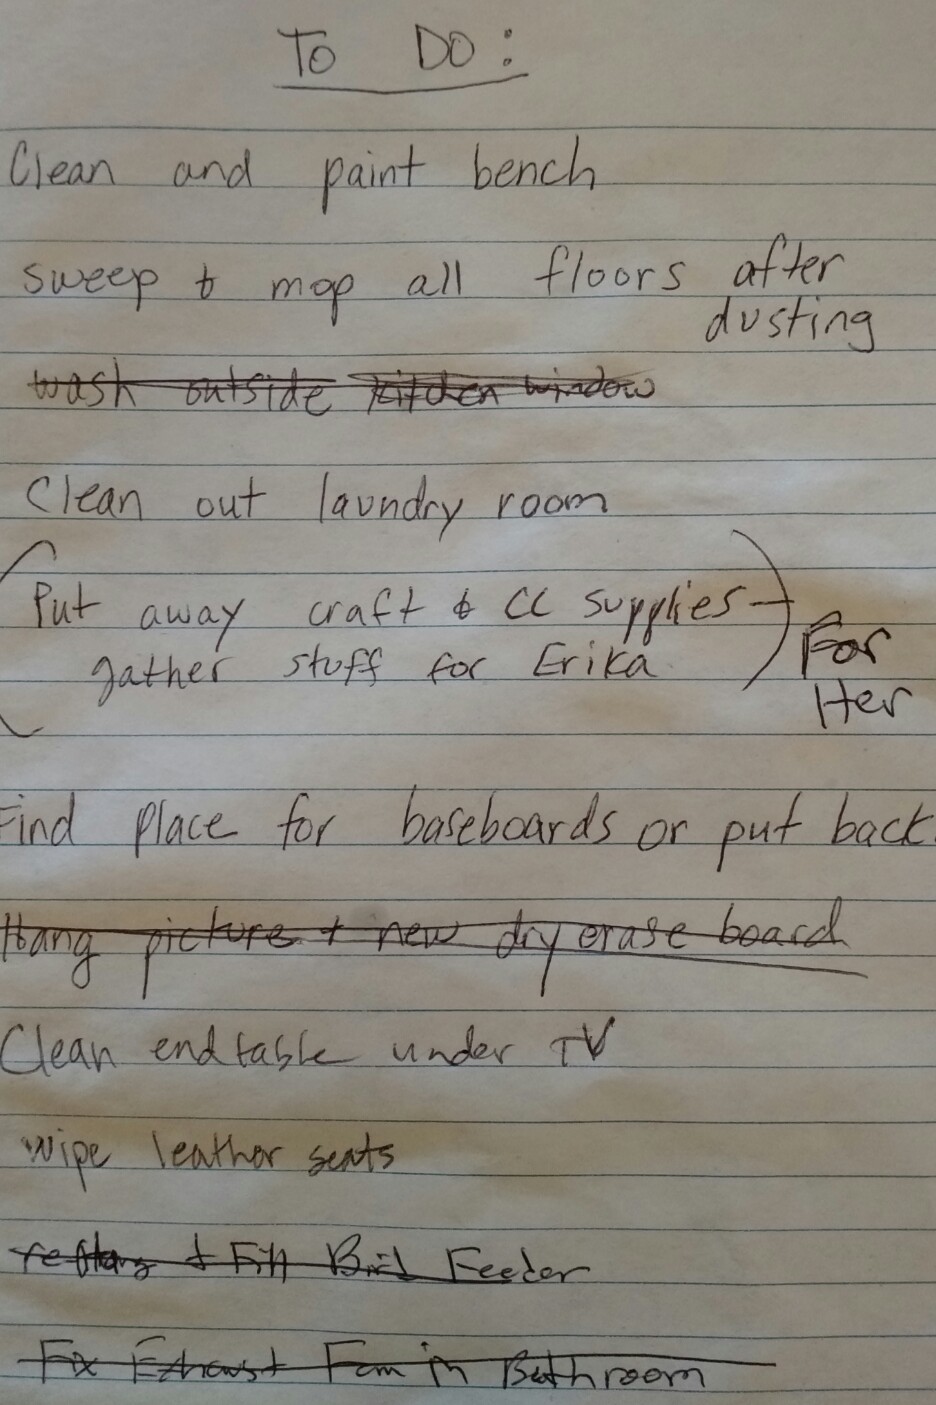 To DO:
Clean and paint bench
Sweep & mop all floors after
dusting
wash outside kitchen window
Clean out laundry room
Put away craft & CC supplies
gather stuff for Erika
For
Her
Find place for baseboards or put back
Hang picture + new dry erase board
Clean endtable under TV
Wipe leather seats
+ Fill Bird Feeder
Fix Exhaust Fan in Bathroom